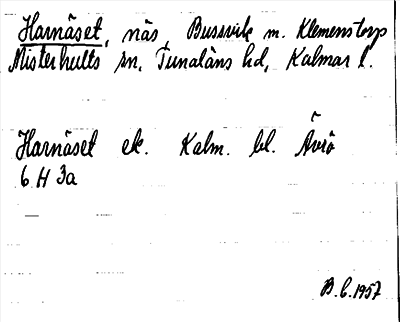 Harnäset, näs, Bussvik m. Klemenstorp
Misterhults sn, Tunaläns hd, Kalmar l.
Harnäset ek. Kalm. bl. Ävrö
6 H 3a
B.C. 1957